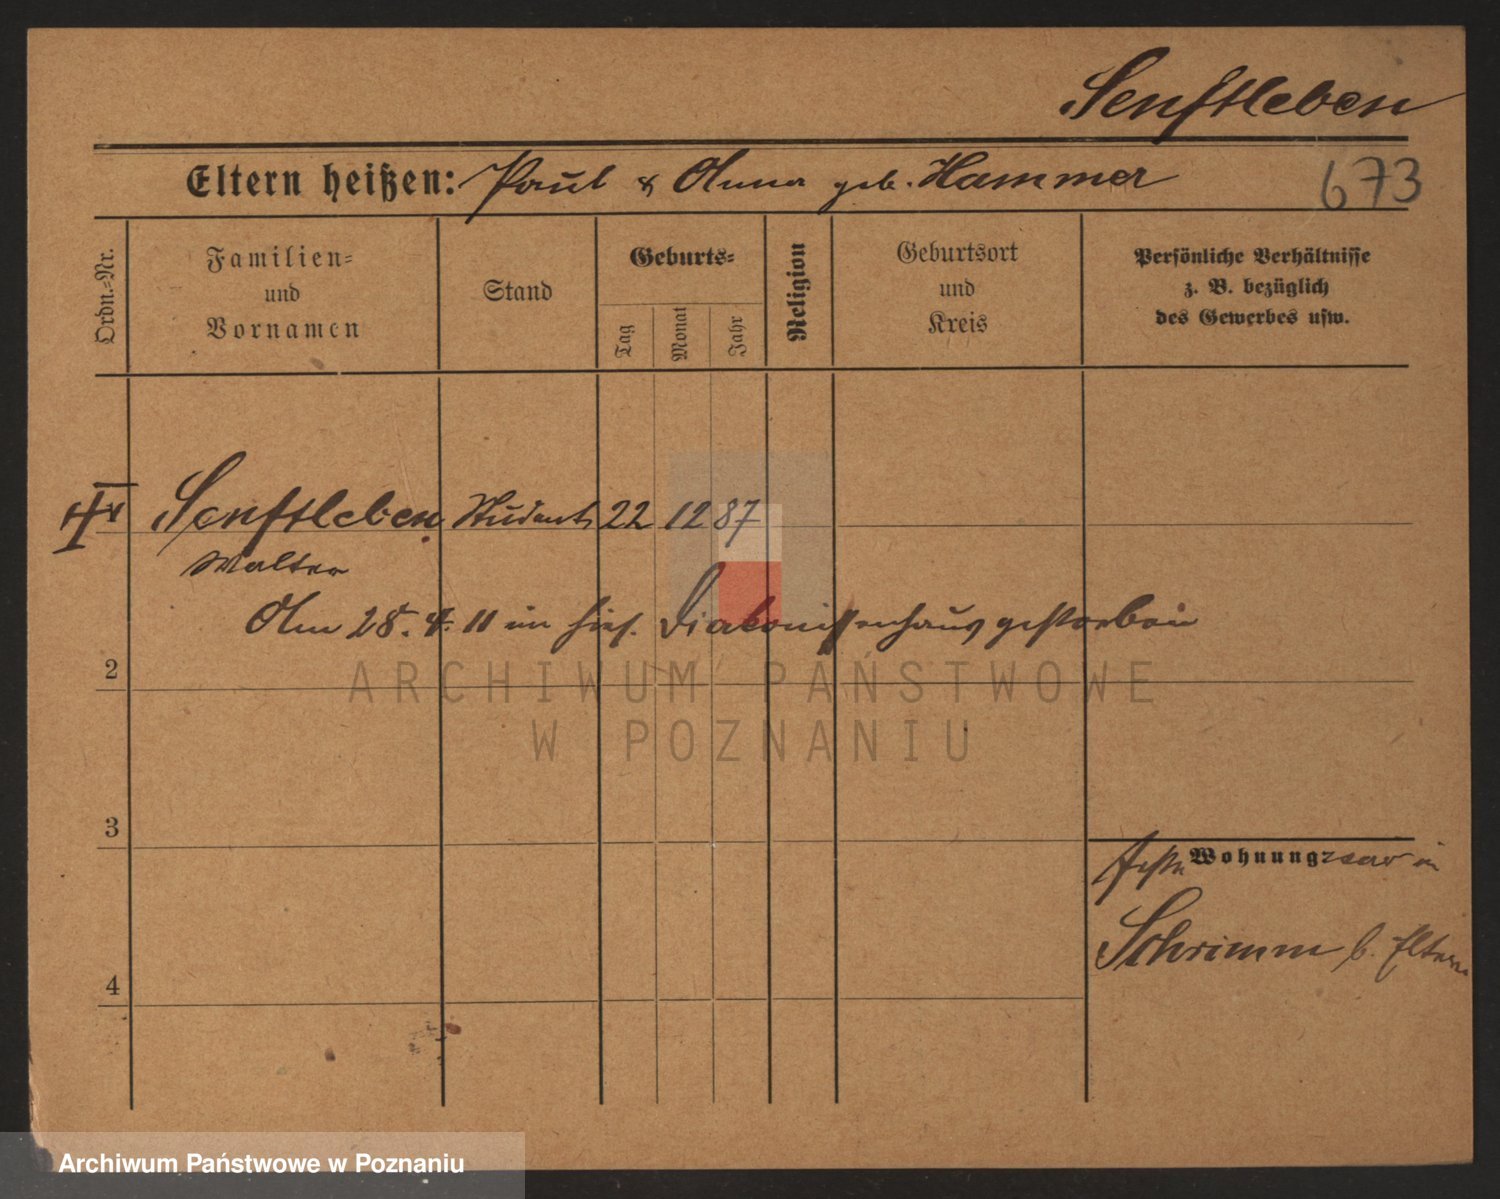 Senftleben
Eltern heißen: Paul & Anna geb. Hammer
673
Ordn.=Nr.
Familien=
und
Vornamen
Stand
Geburts=
Tag
Monat
Jahr
Religion
Geburtsort
und
Kreis
Persönliche Verhältnisse
z. B. bezüglich
des Gewerbes usw.
Senftleben Student 22 12 87
Walter
Am 28. 4. 11 im hies. Diakonissenhaus gestorben
2
ARCHIWUM PAŃSTWOWE
W POZNANIU
3
Wohnung war in
Schrimm b. Eltern
4
Archiwum Państwowe w Poznaniu